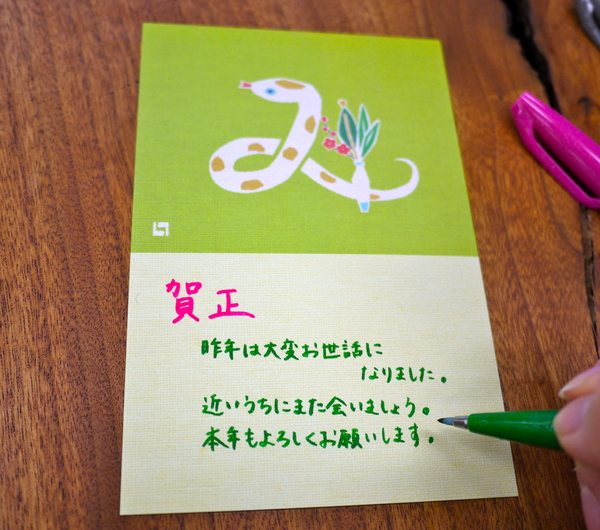 賀正
昨年は大変お世話に
なりました。
近いうちにまた会いましょう。
本年もよろしくお願いします。